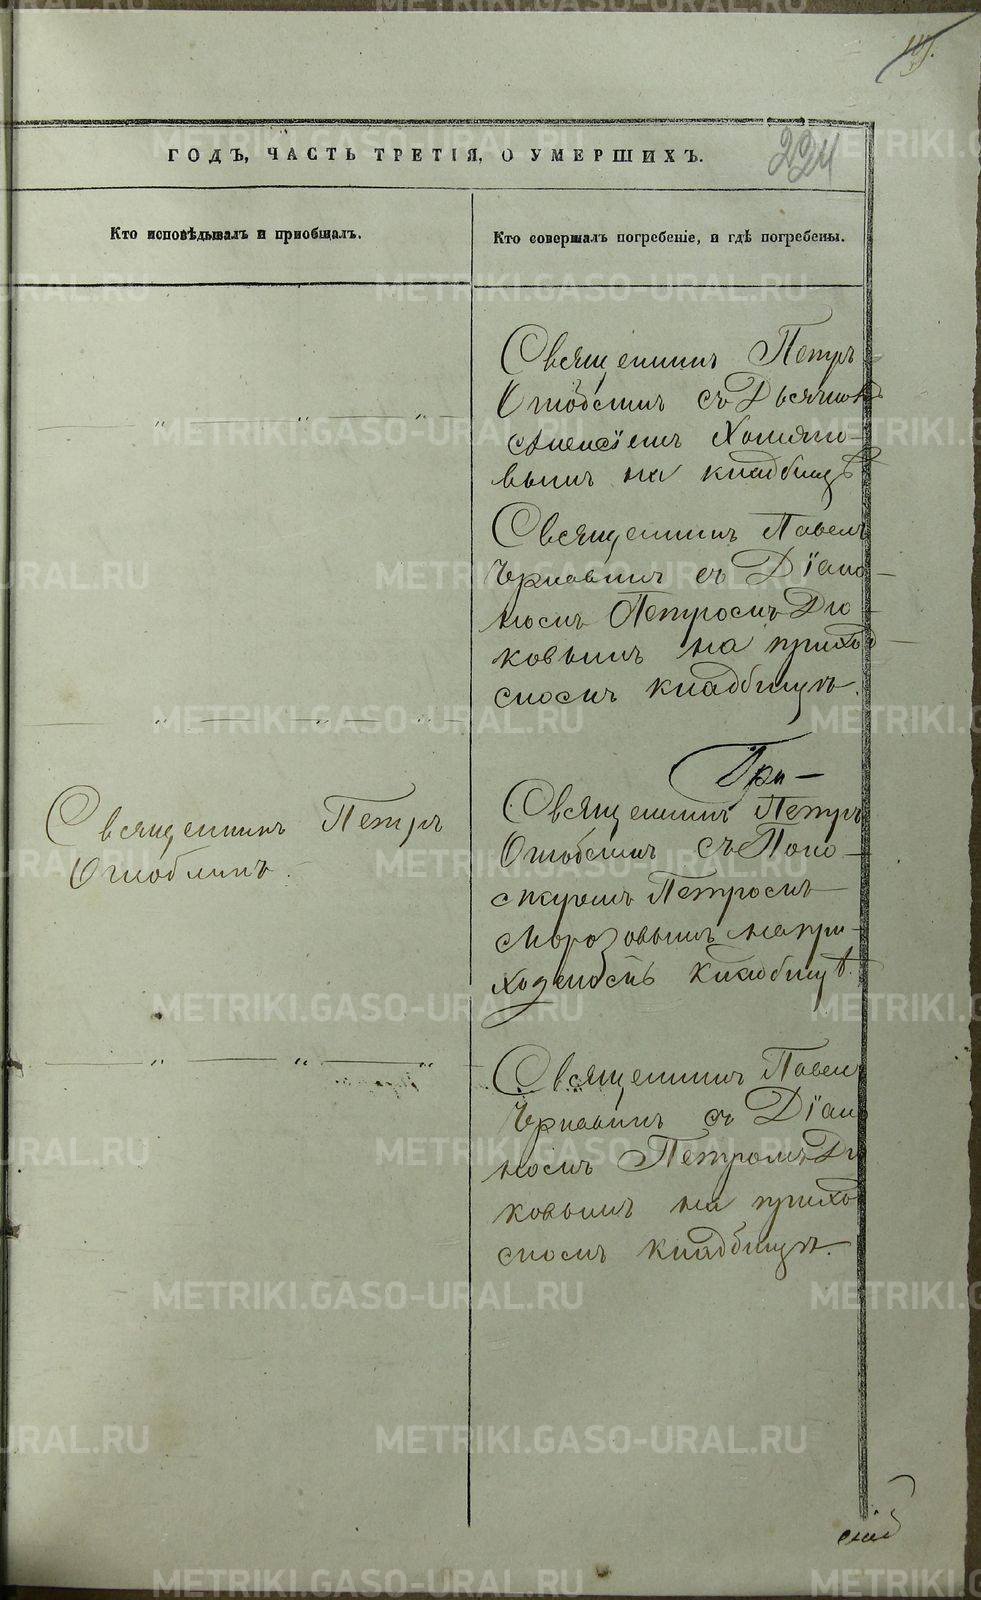 224
ГОДЪ, ЧАСТЬ ТРЕТІЯ, О УМЕРШИХЪ.
Кто исповѣдывалъ и приобщалъ.
Кто совершалъ погребеніе, и гдѣ погребены.
Священникъ Петръ
Оглоблинъ съ Дьячкомъ
Алексіемъ Холмого-
вымъ на кладбищѣ
Священникъ Павелъ
Чернавинъ съ Діако-
номъ Петромъ Дю-
ковымъ на приход-
скомъ кладбищѣ.
При-
Священникъ Петръ
Оглоблинъ.
Священникъ Петръ
Оглоблинъ съ Поно-
маремъ Петромъ
Морозовымъ на при-
ходскомъ кладбищѣ.
Священникъ Павелъ
Чернавинъ съ Діако
номъ Петромъ Дю
ковымъ на прихо
скомъ кладбищѣ.
METRIKI.GASO-URAL.RU